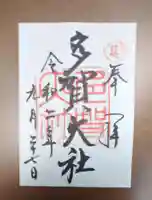 奉拝
多賀大社
令和二年
九月二十七日